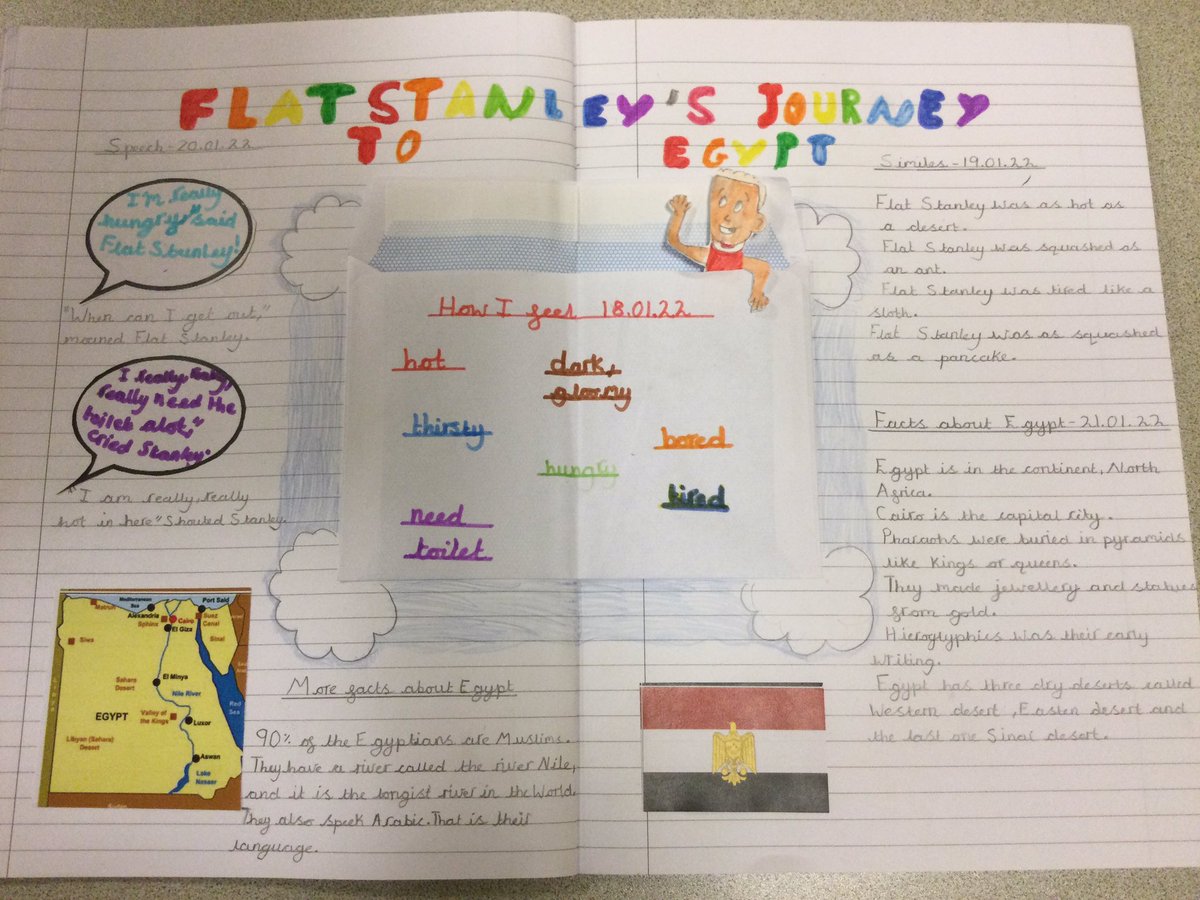 FLAT STANLEY'S JOURNEY
TO EGYPT
Speech-20.01.22
I'm really
hungry," said
Flat Stunley!
"When can I get out,"
moaned Flat Stanley.
I really really,
really need the
toilet alot,"
cried Stanley.
"I am really, really
hot in here" Shouted Stanley.
How I feel 18.01.22
hot
dark,
gloomy
thirsty
bored
hungry
tired
need
toilet
Similes-19.01.22
Flat Stanley was as hot as
a desert.
Flat Stanley was squashed as
an ant.
Flat Stanley was tired like a
sloth.
Flat Stanley was as squashed
as a pancake.
Facts about Egypt-21.01.22
Egypt is in the continent, North
Africa.
Cairo is the capital city.
Pharaohs were buried in pyramids
like Kings or queens.
They made jewellery and statues
from gold.
Hieroglyphics was their early
writing.
Egypt has three dry deserts called
Western desert, Easten desert and
the last one Sinai desert.
Mediterranean
Sea
Port Said
Matruh
Alexandria
Cairo
Suez
Canal
Sphinx
El Giza
Siwa
Sinai
El Minya
Sahara
Desert
Nile River
Red
Sea
EGYPT
Valley of
the Kings
Luxor
Libyan (Sahara)
Desert
Aswan
Lake
Nasser
More facts about Egypt
90% of the Egyptians are Muslims.
They have a river called the river Nile,
and it is the longist river in the World.
They also speek Arabic. That is their
language.